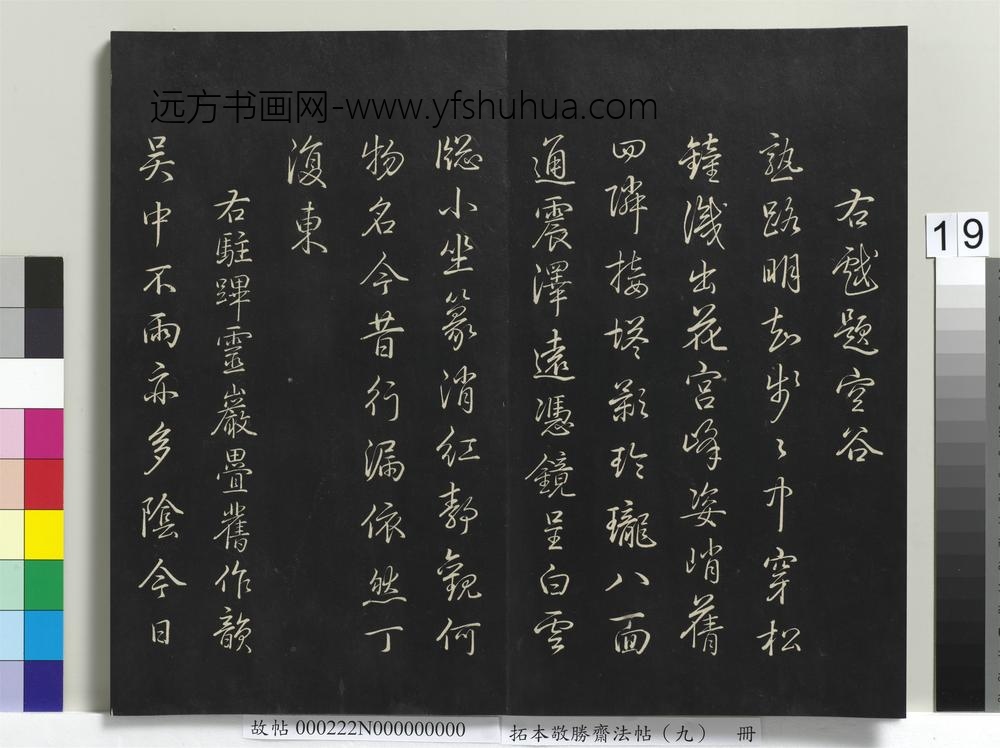 远方书画网-www.yfshuhua.com
右戲題空谷
熟路明知步〻中穿松
鐘濺出花宮峰姿峭蒨
四隣接塔影玲瓏八面
通震澤遠憑鏡呈白雲
牕小坐篆消紅靜觀何
物名今昔行漏依然丁
復東
右駐蹕靈巖疊舊作韻
吳中不雨亦多陰今日
19
故帖 000222N000000000
拓本敬勝齋法帖（九） 冊